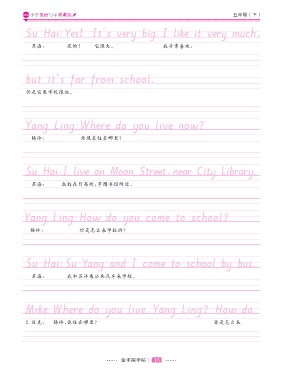 小学英语写字课课练
五年级(下)
Su Hai: Yes! It's very big. I like it very much,
苏海： 是的！ 它很大。 我非常喜欢，
but it's far from school.
但是它离学校很远。
Yang Ling: Where do you live now?
杨玲： 你现在住在哪里？
Su Hai: I live on Moon Street, near City Library.
苏海： 我住在月亮街，市图书馆附近。
Yang Ling: How do you come to school?
杨玲： 你是怎么来学校的？
Su Hai: Su Yang and I come to school by bus.
苏海： 我和苏洋乘公共汽车来学校。
Mike: Where do you live, Yang Ling? How do
迈克： 杨玲，你住在哪里？ 你是怎么来
13